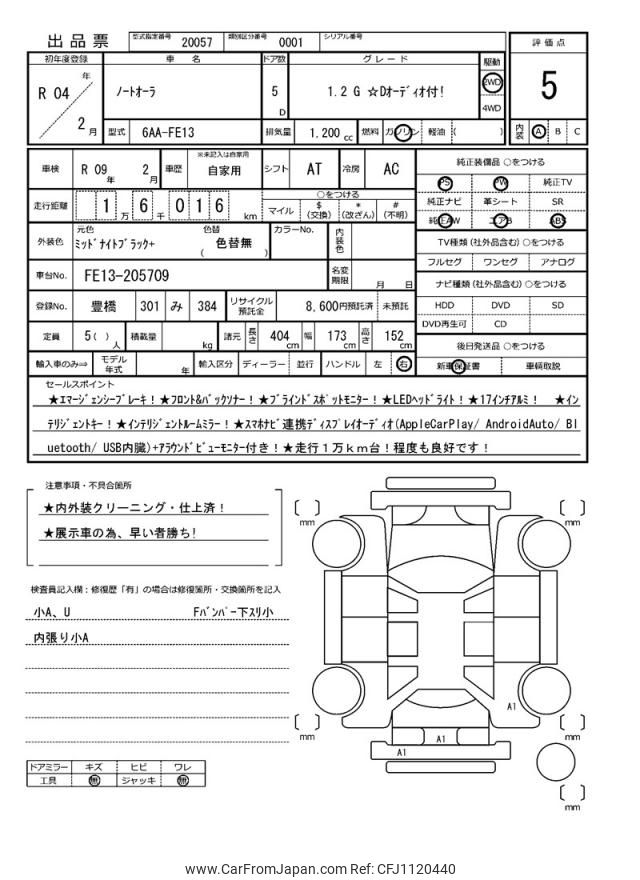 出品票 型式指定番号 20057 類別区分番号 0001 シリアル番号
初年度登録 車名 ドア数 グレード 駆動 評価点
R 04 年 2 月 ノートオーラ 5 D 1.2 G ☆Dオーディオ付! 2WD 4WD 5
型式 6AA-FE13 排気量 1,200 cc 燃料 ガソリン 軽油 ( ) 内装 A B C
車検 R 09 年 2 月 車歴 ※未記入は自家用 自家用 シフト AT 冷房 AC 純正装備品 ○をつける
PS PW 純正TV
走行距離 1 万 6 千 0 1 6 km ○をつける 純正ナビ 革シート SR
マイル $ (交換) * (改ざん) # (不明) 純正AW エアB ABS
外装色 元色 ミッドナイトブラック+ 色替 ( 色替無 ) カラーNo. 内装色 TV種類 (社外品含む) ○をつける
フルセグ ワンセグ アナログ
車台No. FE13-205709 名変期限 月 日 ナビ種類 (社外品含む) ○をつける
登録No. 豊橋 301 み 384 リサイクル預託金 8,600円預託済 未預託 HDD DVD SD
DVD再生可 CD
定員 5 ( ) 人 積載量 kg 諸元 長さ 404 cm 幅 173 cm 高さ 152 cm 後日発送品 ○をつける
輸入車のみ⇒ モデル年式 年 輸入区分 ディーラー 並行 ハンドル 左 右 新車保証書 車輌取説
セールスポイント
★エマージェンシーブレーキ!★フロント&バックソナー!★ブラインドスポットモニター!★LEDヘッドライト!★17インチアルミ! ★イン
テリジェントキー!★インテリジェントルームミラー!★スマホナビ連携ディスプレイオーディオ(AppleCarPlay/ AndroidAuto/ Bl
uetooth/ USB内臓)+アラウンドビューモニター付き!★走行1万km台!程度も良好です!
注意事項・不具合箇所
★内外装クリーニング・仕上済!
★展示車の為、早い者勝ち!
検査員記入欄:修復歴「有」の場合は修復箇所・交換箇所を記入
小A、U Fバンパー下スリ小
内張り小A
mm
mm
A1
mm
A1
mm
A1
mm
ドアミラー キズ ヒビ ワレ
工具 無 ジャッキ 無
www.CarFromJapan.com Ref: CFJ1120440